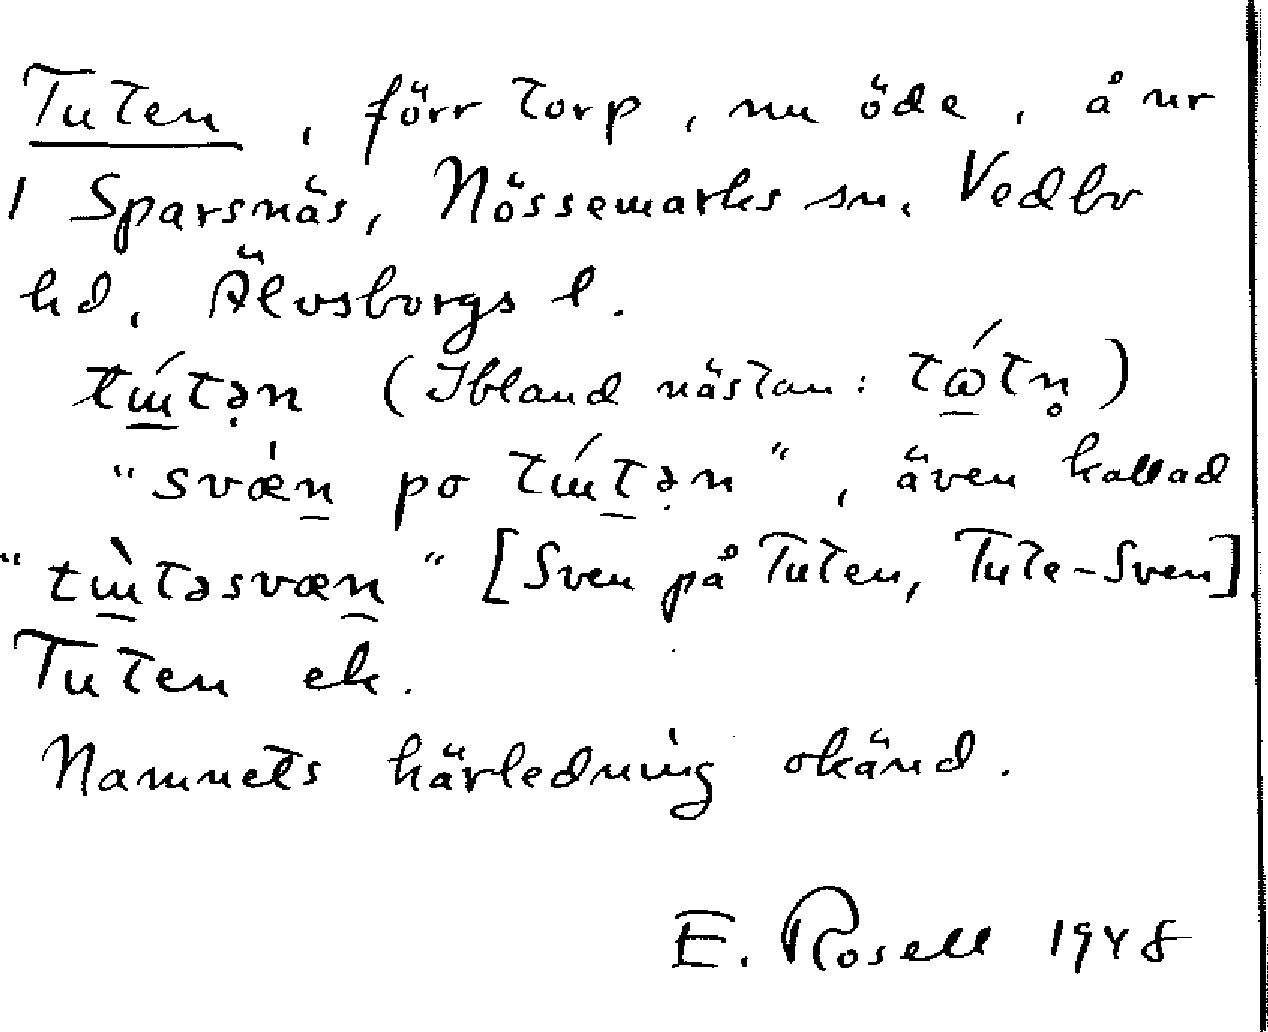 Tuten, förr torp, nu öde, å nr
1 Sparsnäs, Nössemarks sn. Vedbo
hd, Älvsborgs l.
tɯ́tən (Ibland nästan: tώtn̥)
"svǽn po tɯ́tən", även kallad
"tɯ̀təsvæn" [Sven på Tuten, Tute-Sven]
Tuten ek.
Namnets härledning okänd.
E. Rosell 1948